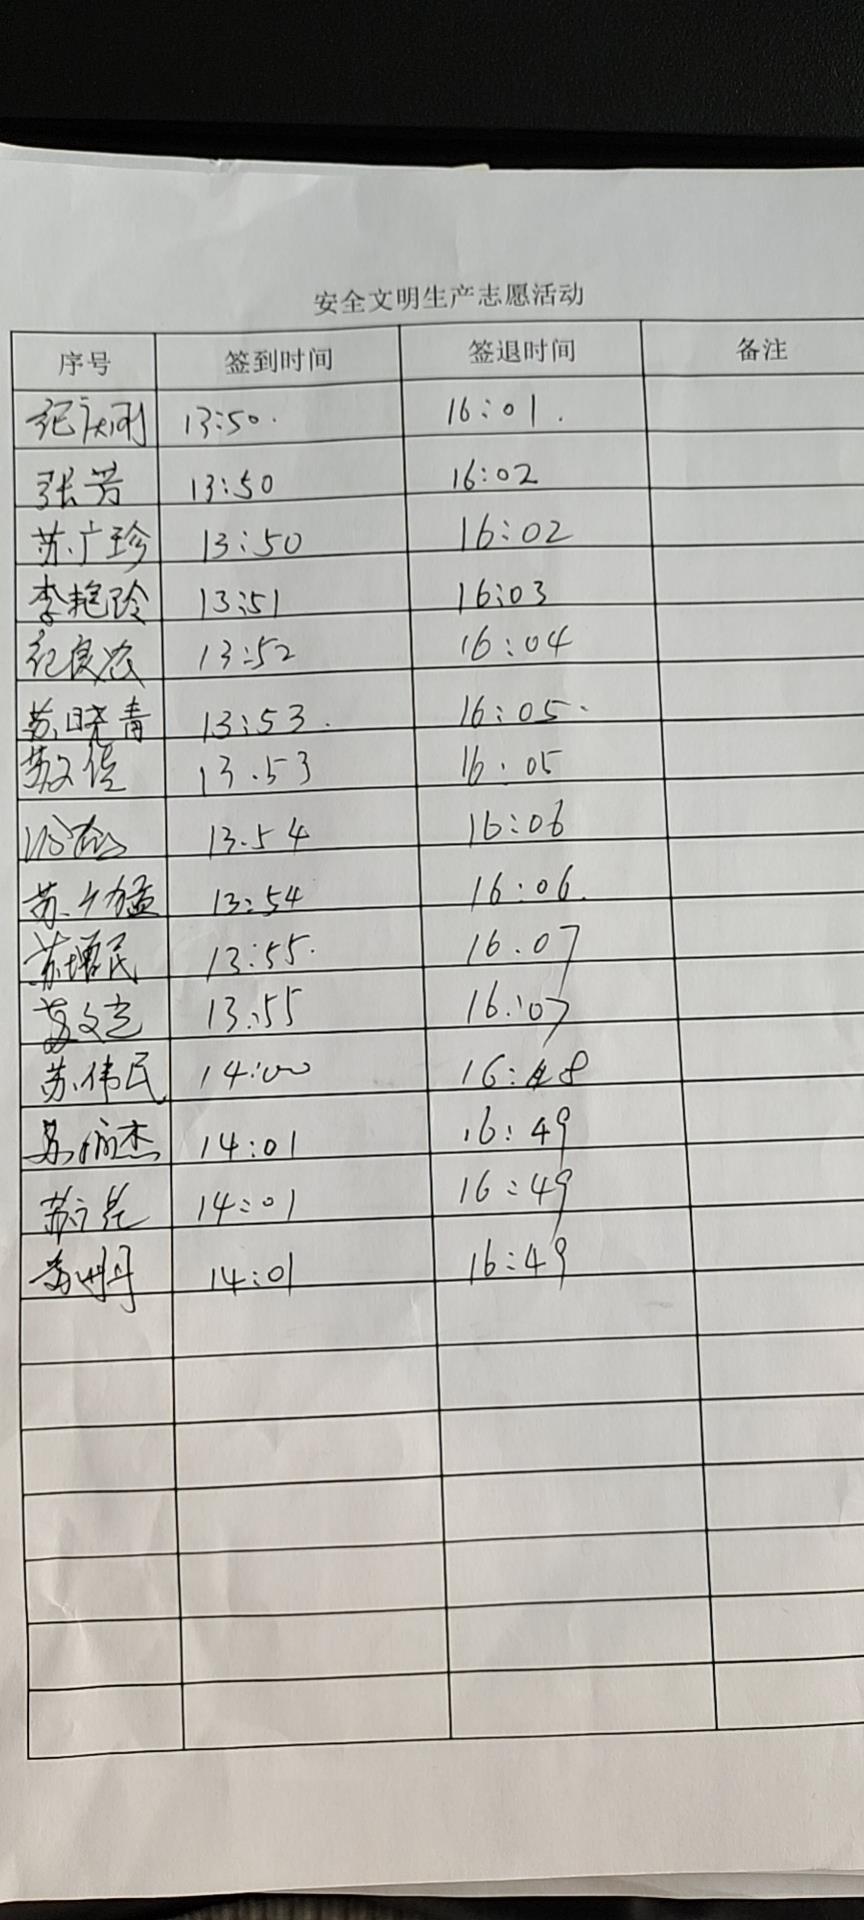 安全文明生产志愿活动
序号 签到时间 签退时间 备注
纪庆刚 13:50. 16:01.
张芳 13:50 16:02
苏广珍 13:50 16:02
李艳玲 13:51 16:03
纪良浓 13:52 16:04
苏晓青 13:53. 16:05.
苏文佳 13.53 16:05
13.54 16:06
苏广猛 13:54 16:06.
苏增民 13:55. 16.07
苏文志 13:55 16:07
苏伟民 14:00 16:48
杰 14:01 16:49
苏 14:01 16:49
苏明丹 14:01 16:49